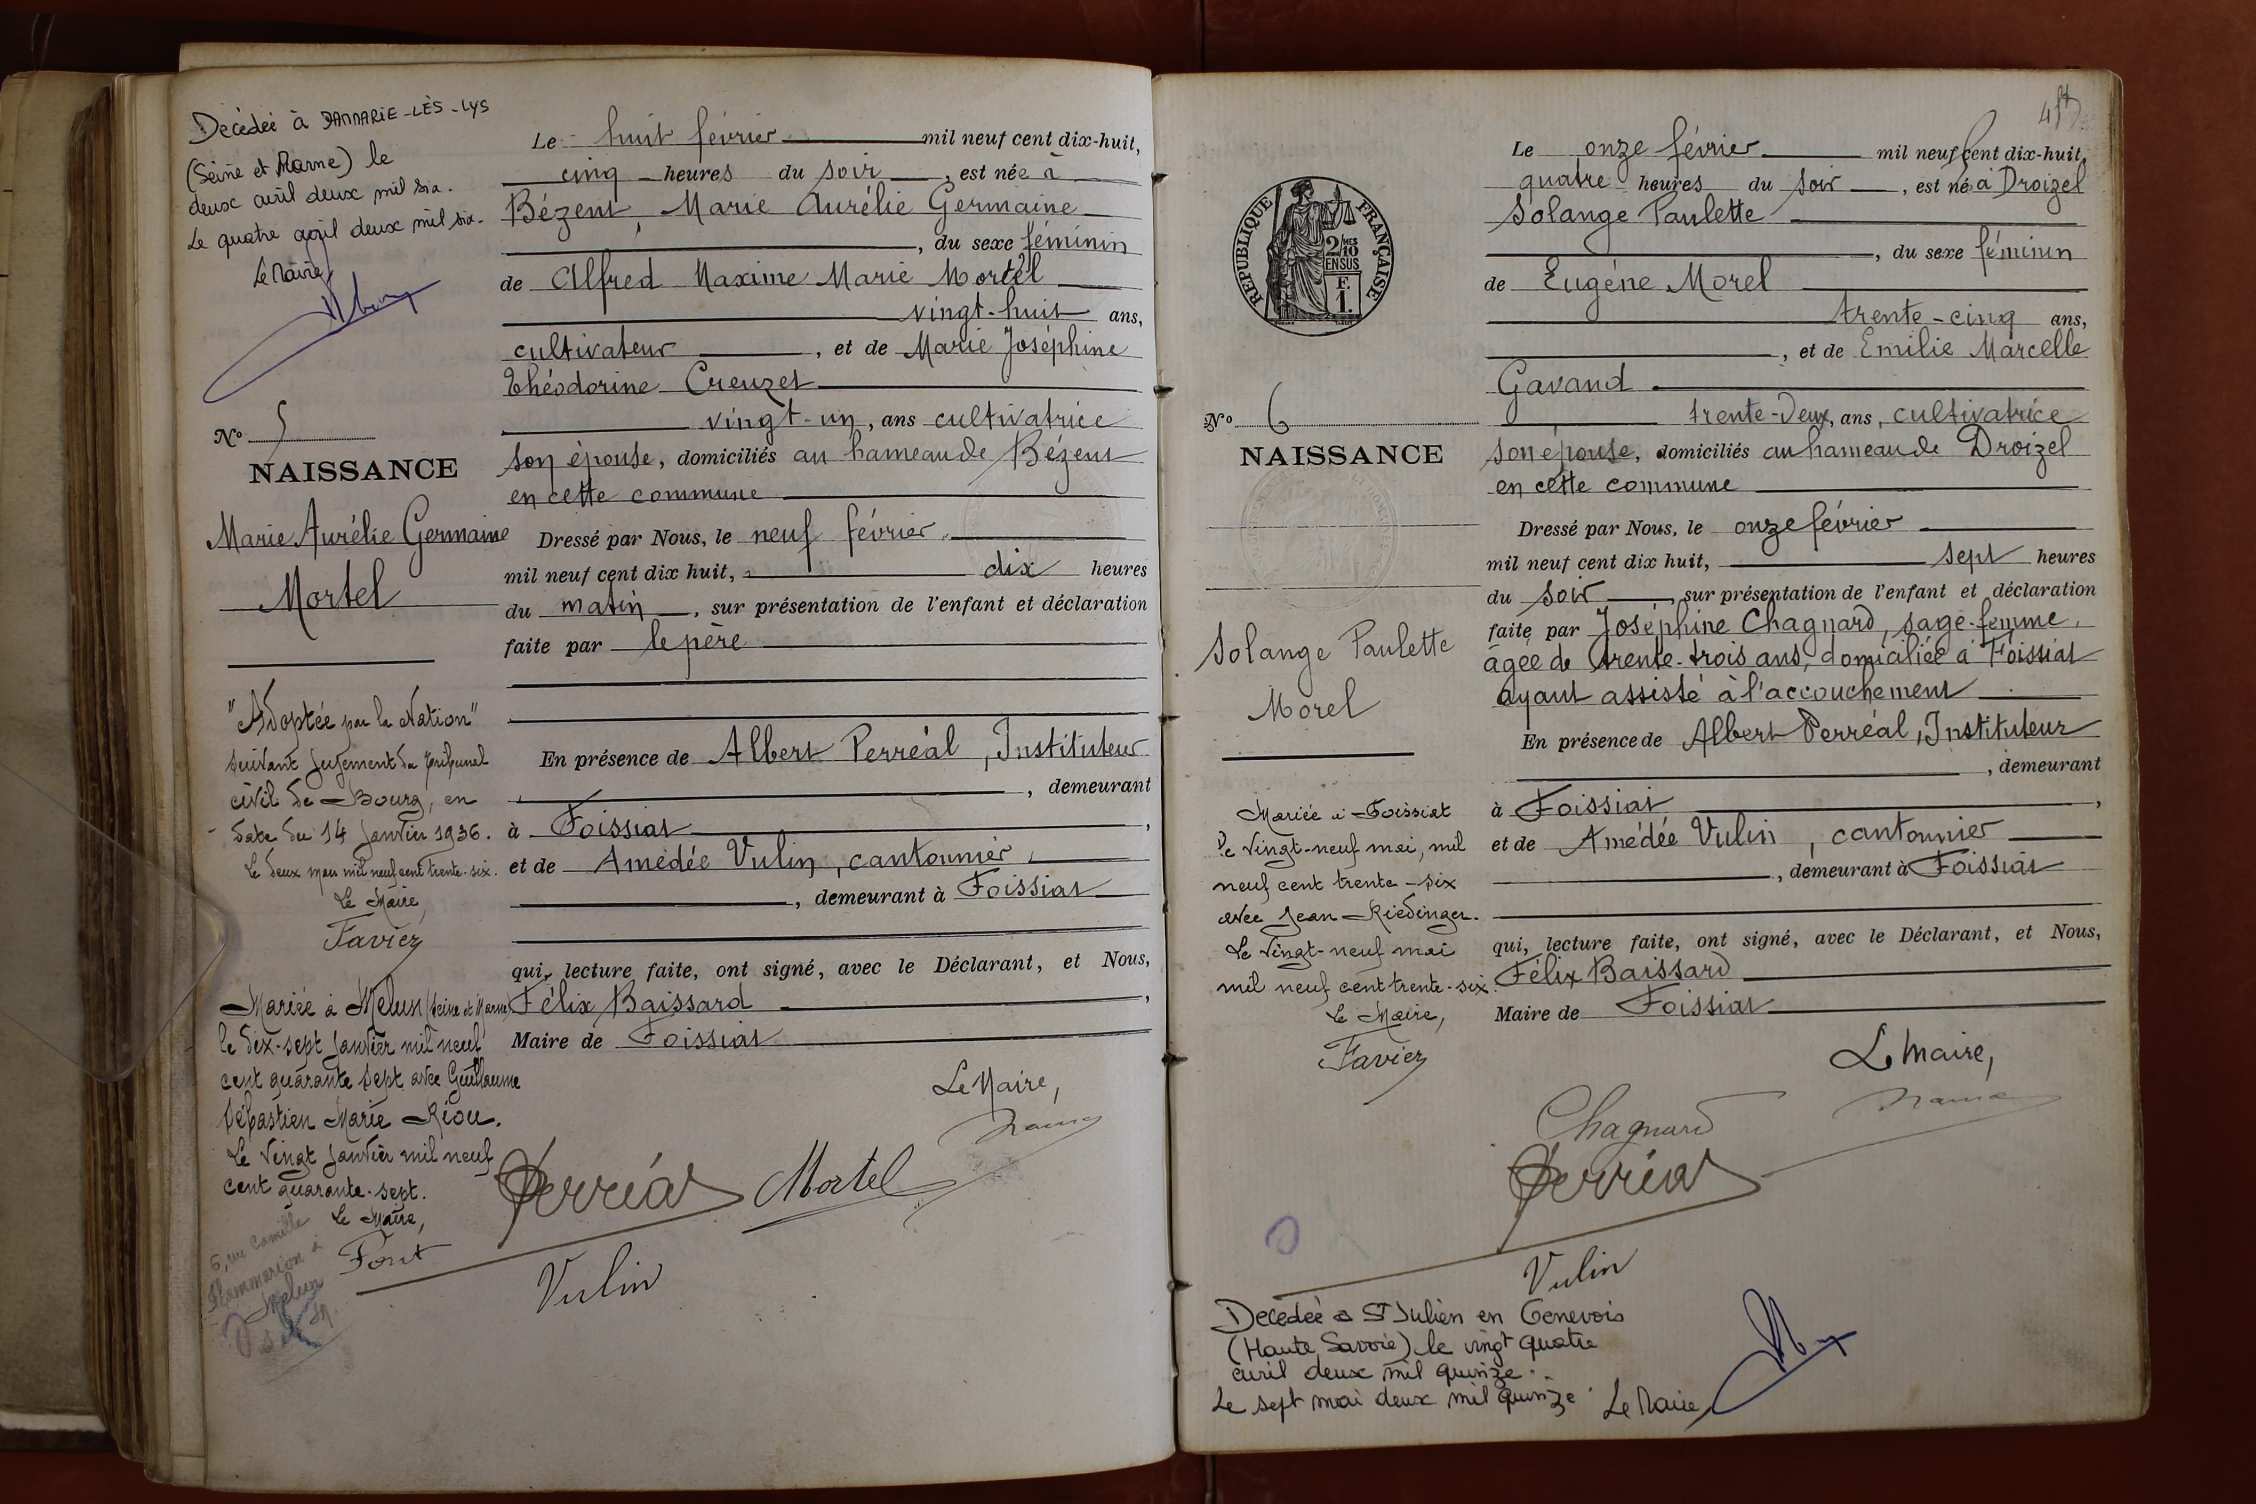 Décédée à DAMMARIE-LÈS-LYS
(Seine et Marne) le
deux avril deux mil six.
Le quatre avril deux mil six.
Le Maire,
No 5
NAISSANCE
Marie Aurélie Germaine
Mortel
"Adoptée par la Nation"
suivant jugement du Tribunal
civil de Bourg, en
date du 14 Janvier 1936.
Le deux mars mil neuf cent trente-six.
Le Maire,
Favier
Mariée à Melun (Seine et Marne)
le dix-sept Janvier mil neuf
cent quarante sept avec Guillaume
Sébastien Marie Riou.
Le vingt Janvier mil neuf
cent quarante-sept.
Le Maire,
Font
6, rue Camille
Flammarion à
Melun
Le huit février mil neuf cent dix-huit,
cinq heures du soir, est née à
Bézent, Marie Aurélie Germaine
, du sexe féminin
de Alfred Maxime Marie Mortel
vingt-huit ans,
cultivateur, et de Marie Joséphine
Théodorine Creuzet
vingt-un, ans cultivatrice
son épouse, domiciliés au hameau de Bézent
en cette commune
Dressé par Nous, le neuf février,
mil neuf cent dix huit, dix heures
du matin, sur présentation de l'enfant et déclaration
faite par le père
En présence de Albert Perréal, Instituteur
, demeurant
à Foissiat,
et de Amédée Vulin, cantonnier,
, demeurant à Foissiat
qui, lecture faite, ont signé, avec le Déclarant, et Nous,
Félix Baissard,
Maire de Foissiat
Le Maire,
Perréal Mortel
Vulin
RÉPUBLIQUE FRANÇAISE
2/10
EN SUS
F.
1.
No 6
NAISSANCE
Solange Paulette
Morel
Mariée à Foissiat
le vingt-neuf mai, mil
neuf cent trente-six
avec Jean Riedinger.
Le vingt-neuf mai
mil neuf cent trente-six.
Le Maire,
Favier
Le onze février mil neuf cent dix-huit,
quatre heures du soir, est née à Droizel
Solange Paulette
, du sexe féminin
de Eugène Morel
trente-cinq ans,
, et de Emilie Marcelle
Gavand
trente-deux, ans, cultivatrice
son épouse, domiciliés au hameau de Droizel
en cette commune
Dressé par Nous, le onze février
mil neuf cent dix huit, sept heures
du soir, sur présentation de l'enfant et déclaration
faite par Joséphine Chagnard, sage-femme,
âgée de trente-trois ans, domiciliée à Foissiat
ayant assisté à l'accouchement
En présence de Albert Perréal, Instituteur
, demeurant
à Foissiat,
et de Amédée Vulin, cantonnier
, demeurant à Foissiat
qui, lecture faite, ont signé, avec le Déclarant, et Nous,
Félix Baissard
Maire de Foissiat
Le Maire,
Chagnard
Perréal
Vulin
Décédée à St Julien en Genevois
(Haute Savoie) le vingt quatre
avril deux mil quinze.
Le sept mai deux mil quinze. Le Maire,